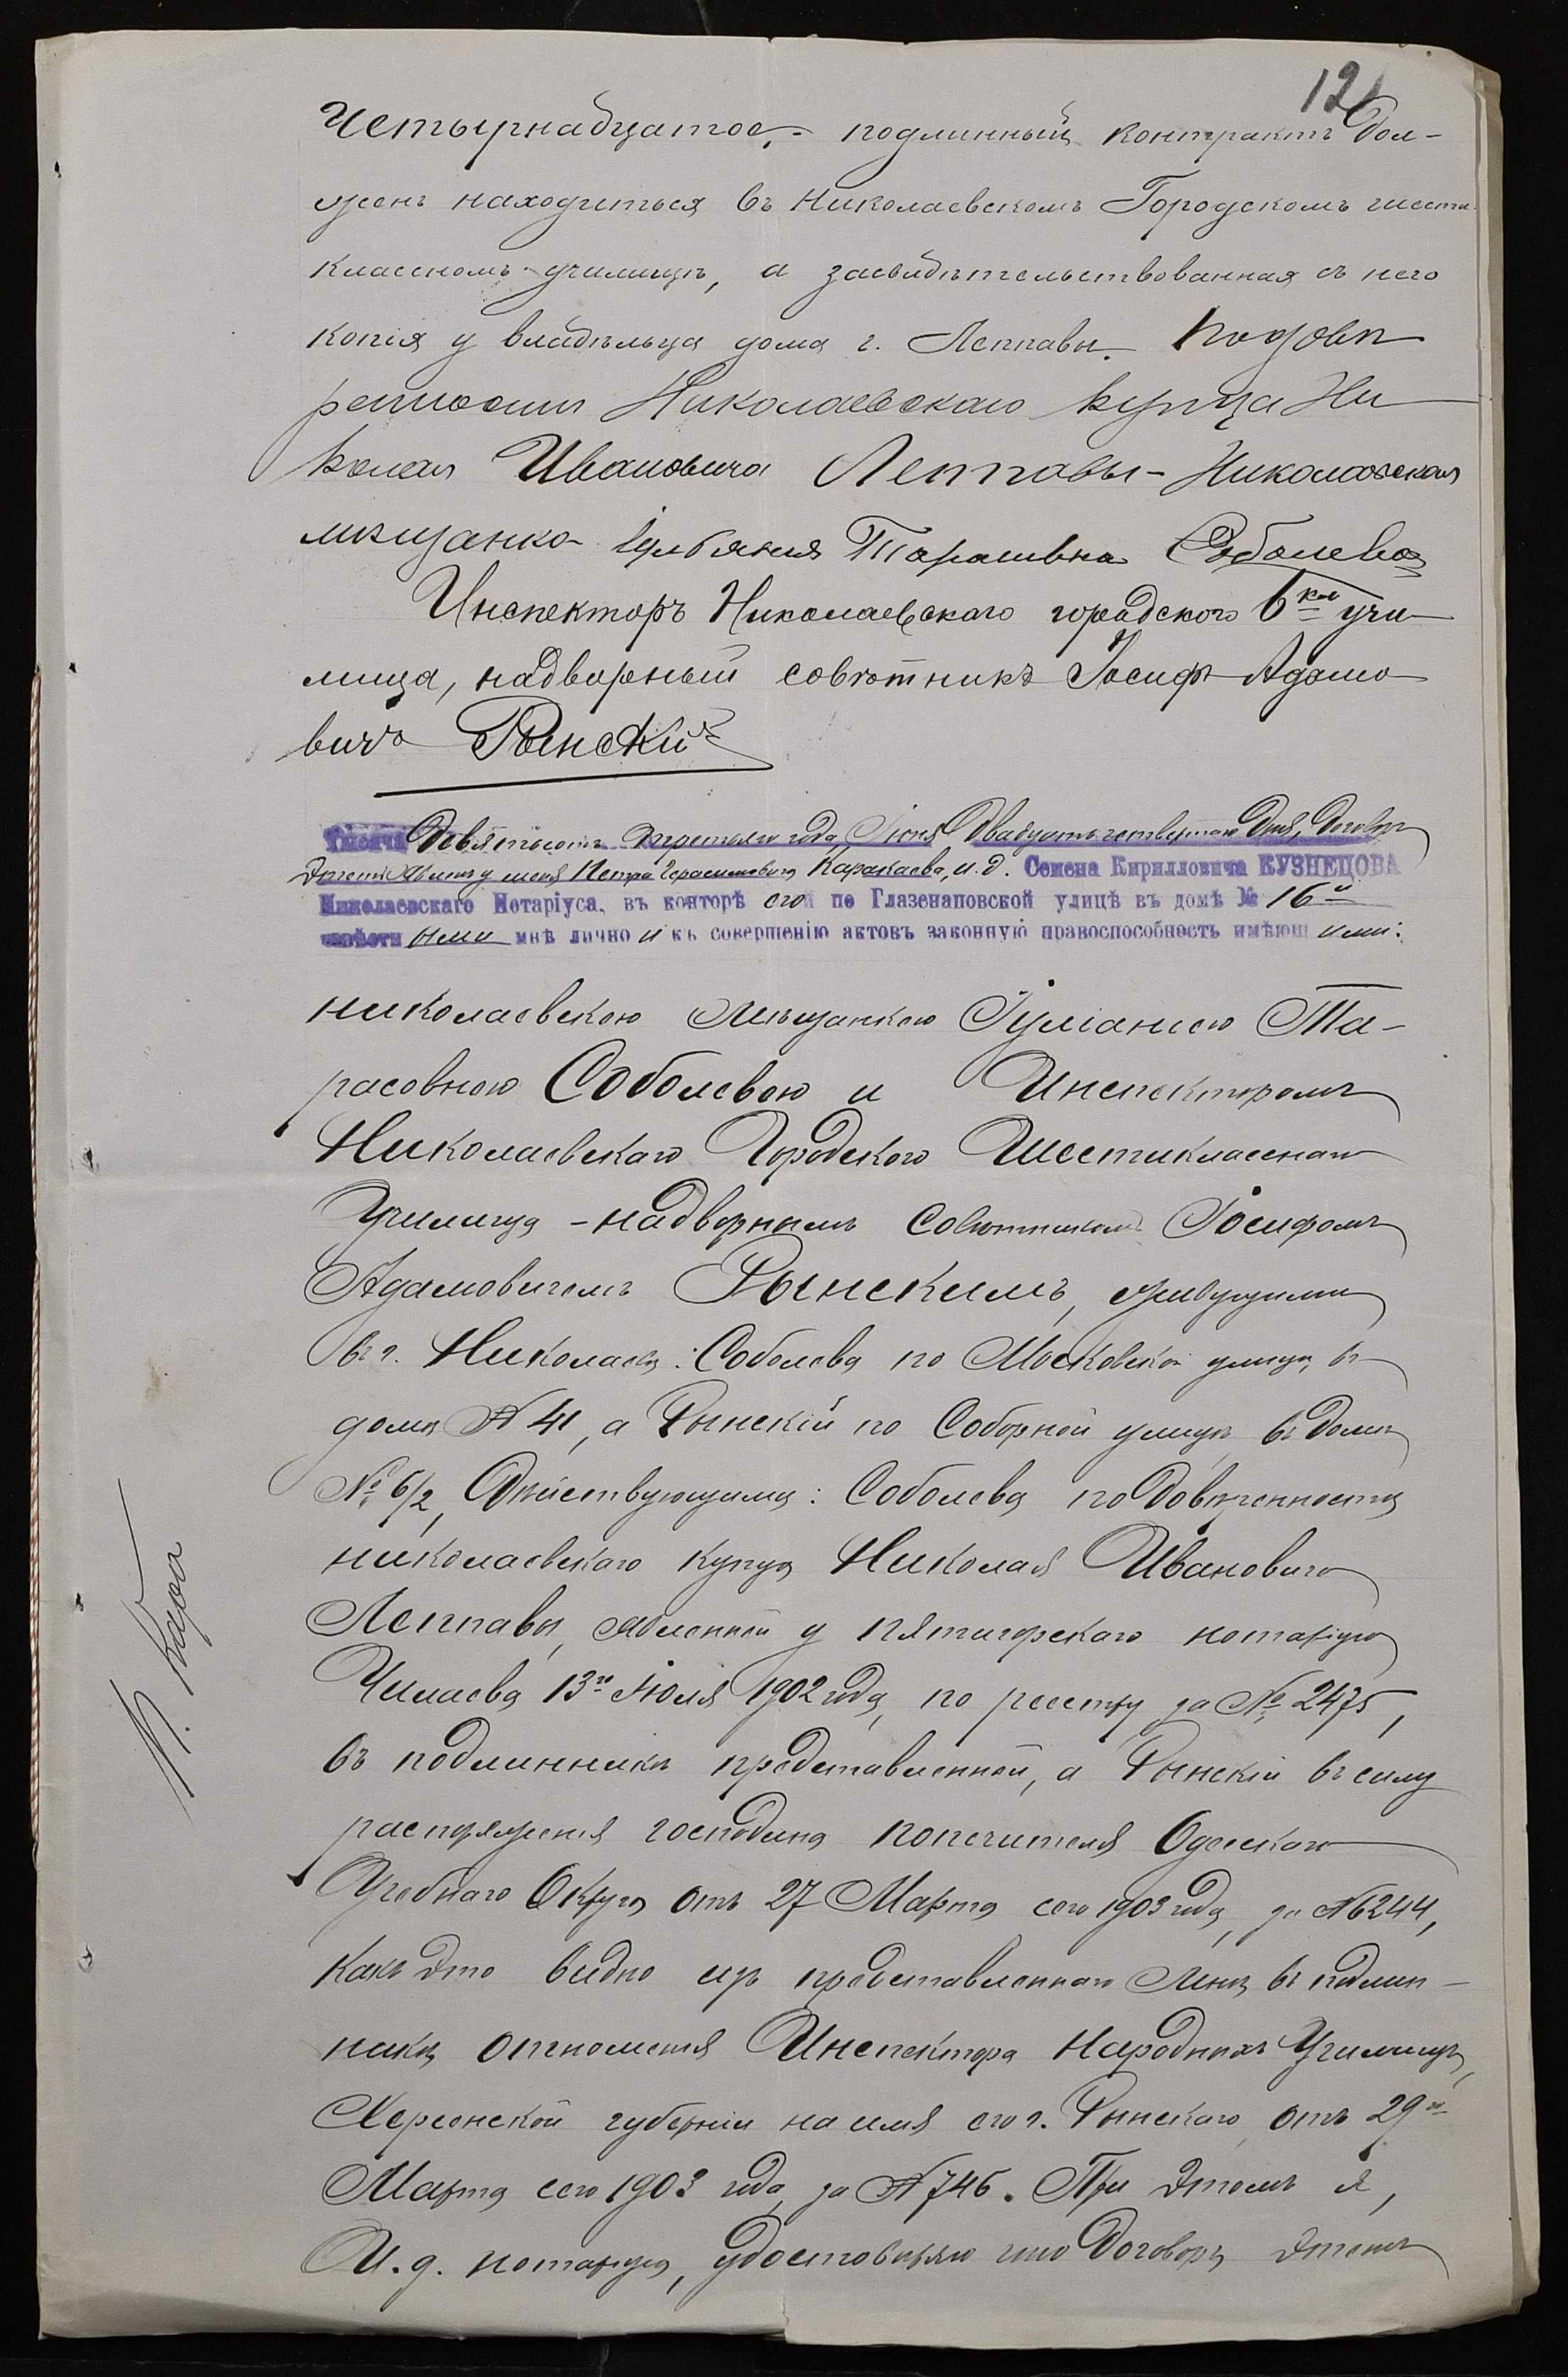 121
Четырнадцатое,- подлинный контрактъ дол-
женъ находиться въ Николаевскомъ Городскомъ шести-
классномъ училищѣ, а засвидѣтельствованная съ него
копія у владѣльца дома г. Леппавы. По довѣ
ренности Николаевскаго купца Ни
колая Ивановича Леппавы - Николаевская
мѣщанка Тарасивна Соболева
Инспекторъ Николаевскаго городского 6 кл учи-
лища, надворный совѣтникъ Іосифъ Адамо
вичъ Рынскій
Тысяча девятьсотъ третьяго года, Іюня двадцать четвертаго дня, договоръ
этотъ явленъ у меня Петра Герасимовича Каракаева, и.д. Семена Кирилловича КУЗНЕЦОВА
Николаевскаго Нотаріуса, въ конторѣ его по Глазенаповской улицѣ въ домѣ № 16й
ными мнѣ лично и къ совершенію актовъ законную правоспособность имѣющими:
николаевскою мѣщанкою Іуліаніею Та-
расовною Соболевою и Инспекторомъ
Николаевскаго Городского Шестикласснаго
Училища - надворнымъ совѣтникомъ Іосифомъ
Адамовичемъ Рынскимъ, живущими
въ г. Николаевѣ: Соболева по Московской улицѣ, въ
домѣ № 41, а Рынскій по Соборной улицѣ, въ домѣ
№ 6/2, дѣйствующими: Соболева по довѣренности
николаевскаго купца Николая Ивановича
Леппавы, явленной у пятигорскаго нотаріуса
Чилаева 13го Іюля 1902 года, по реестру за № 2475,
въ подлинникѣ представленной, а Рынскій въ силу
распоряженія господина попечителя Одесскаго
Учебнаго Округа отъ 27 Марта сего 1903 года, за № 6244,
какъ это видно изъ представленнаго мнѣ въ подлин-
никѣ отношенія Инспектора Народныхъ Училищъ,
Херсонской губерніи на имя его г. Рынскаго, отъ 29го
Марта сего 1903 года, за № 746. При этомъ я,
И.д. нотаріуса, удостовѣряю что договоръ этотъ